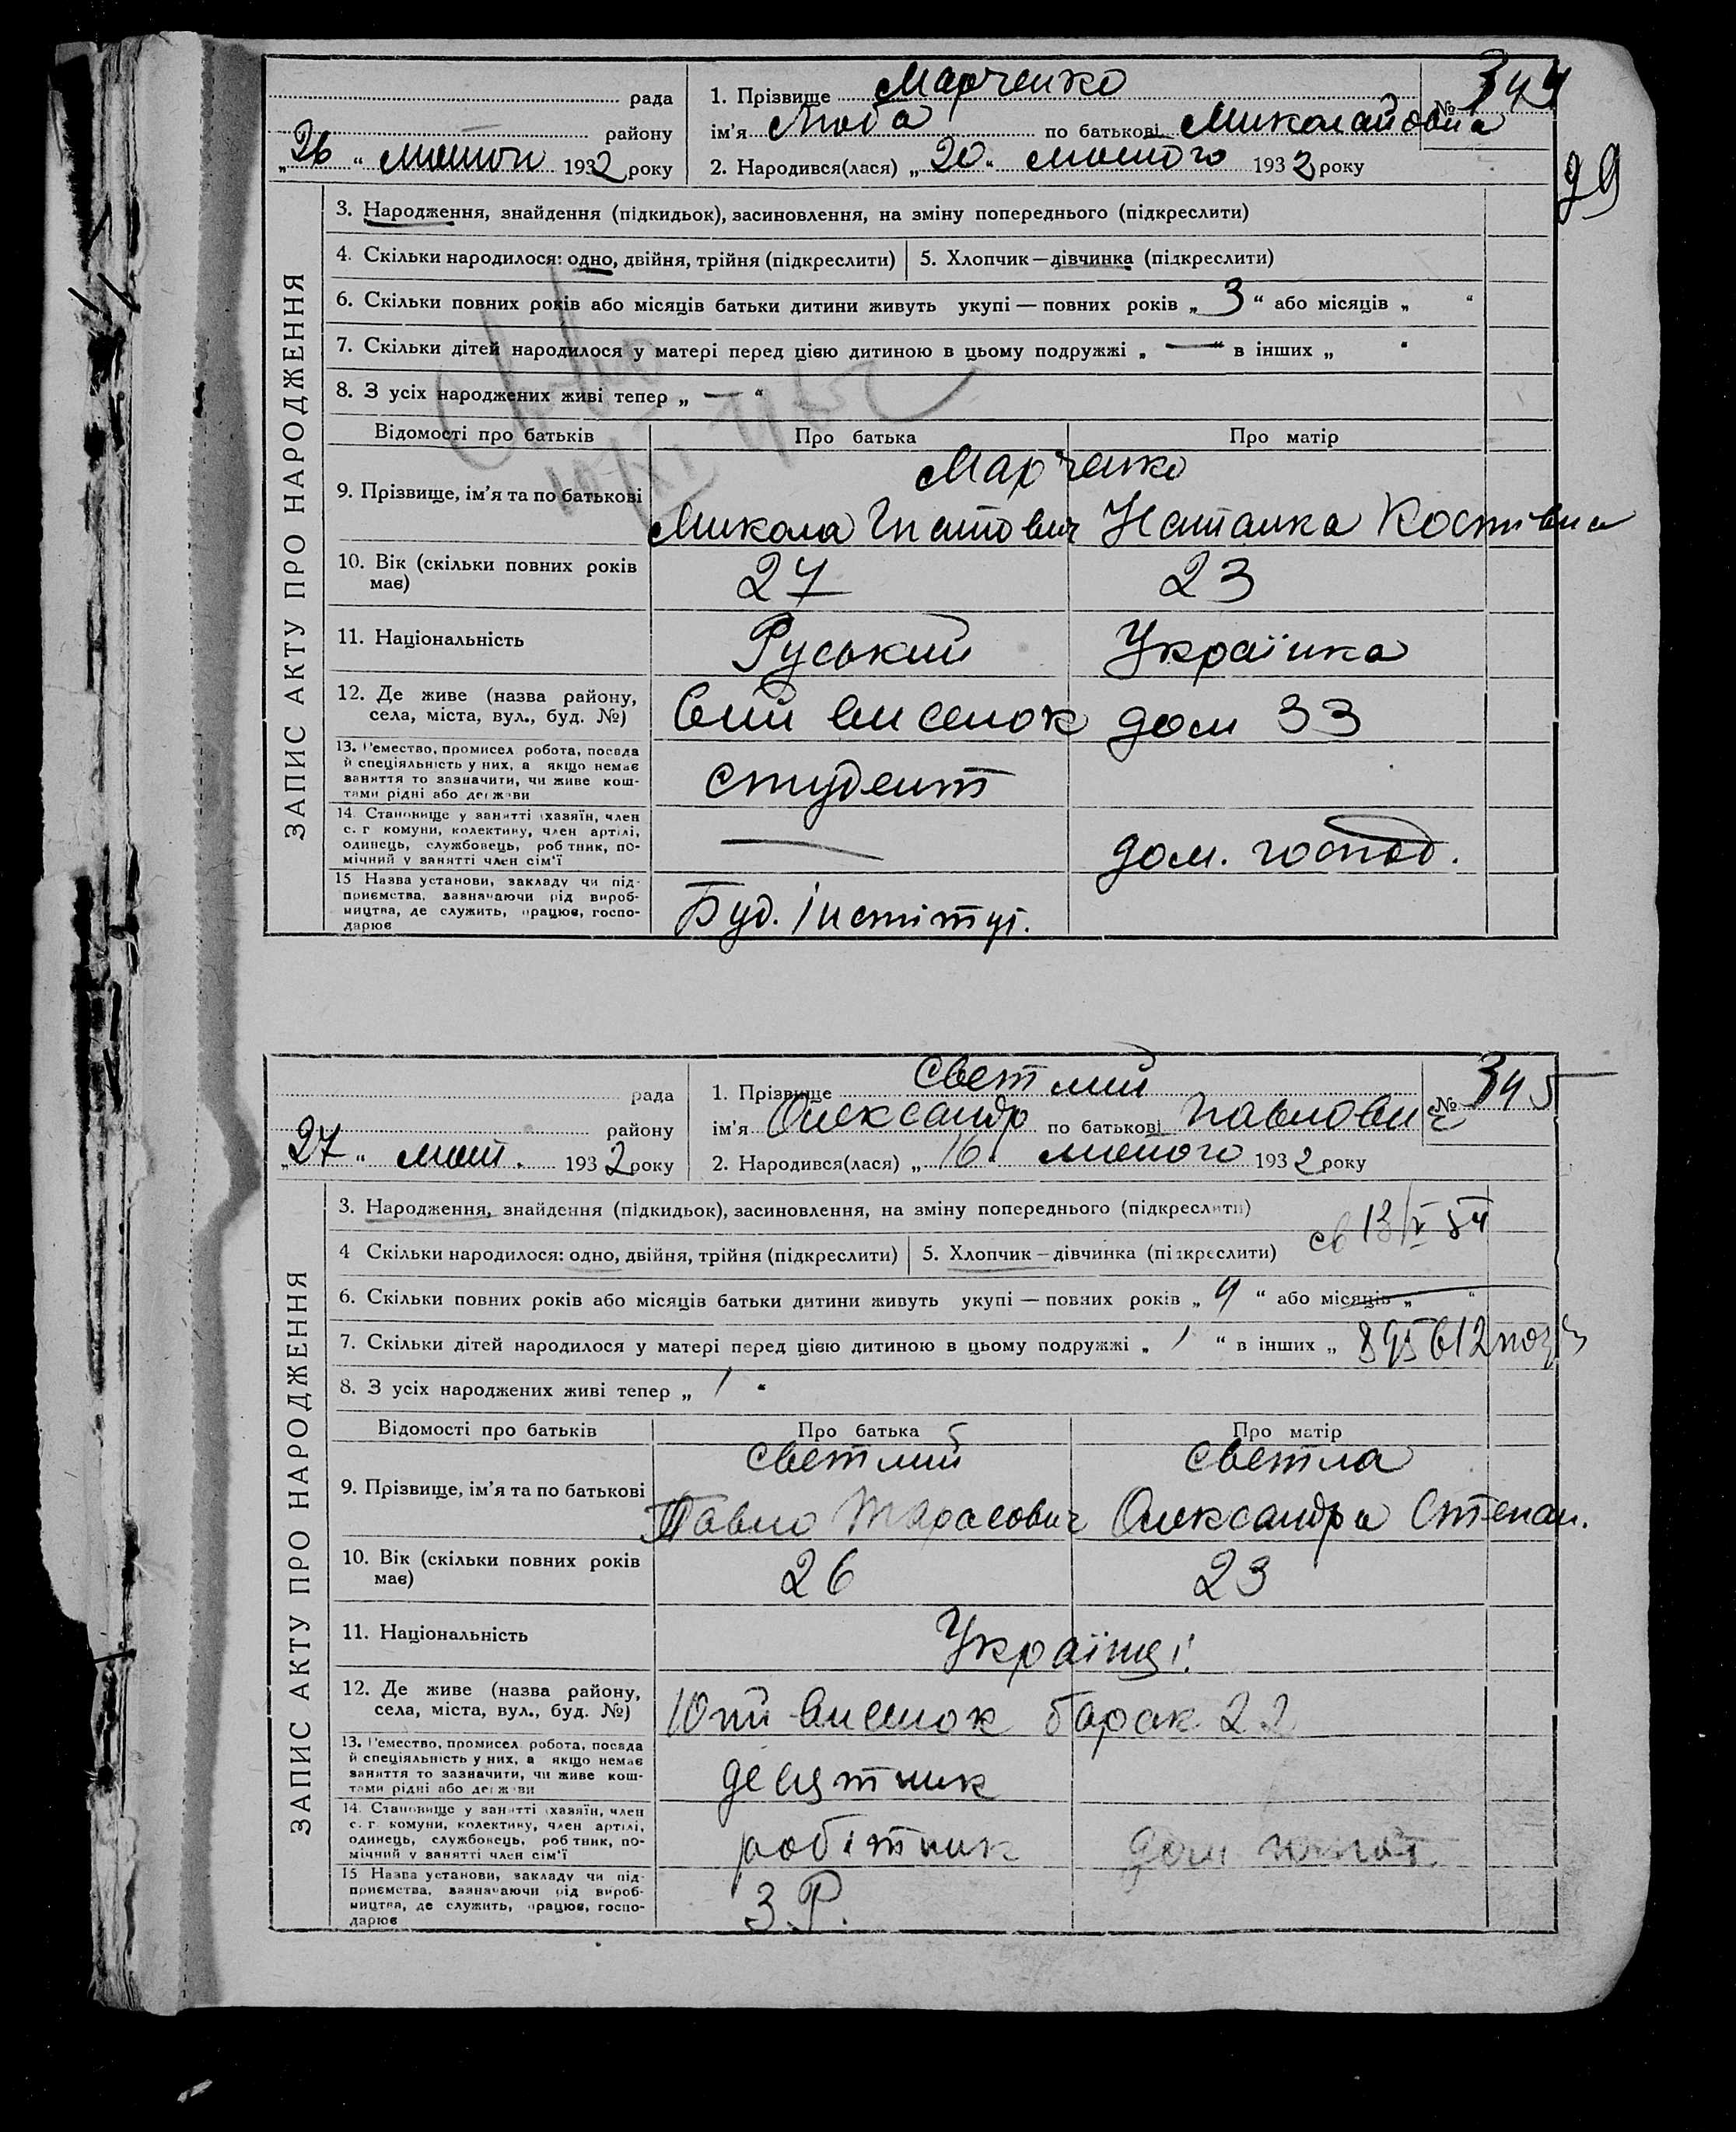 рада
району
„26“ лютого 1932 року
1. Прізвище Марченко
№ 344
ім’я Люба по батькові Миколаївна
2. Народився(лася) „20“ лютого 1932 року
99
ЗАПИС АКТУ ПРО НАРОДЖЕННЯ
3. Народження, знайдення (підкидьок), засиновлення, на зміну попереднього (підкреслити)
4. Скільки народилося: одно, двійня, трійня (підкреслити) 5. Хлопчик—дівчинка (підкреслити)
6. Скільки повних років або місяців батьки дитини живуть укупі — повних років „3“ або місяців „ “
7. Скільки дітей народилося у матері перед цією дитиною в цьому подружжі „—“ в інших „ “
8. З усіх народжених живі тепер „—“
Відомості про батьків Про батька Про матір
9. Прізвище, ім’я та по батькові
Марченко
Микола Гнатович Наталка Костівна
10. Вік (скільки повних років
має)
27 23
11. Національність Руський Українка
12. Де живе (назва району,
села, міста, вул., буд. №)
6ий виселок дом 33
13. Ремество, промисел робота, посада
й спеціяльність у них, а якщо немає
заняття то зазначити, чи живе кош-
тами рідні або держави
студент
14. Становище у занятті (хазяїн, член
с. г. комуни, колективу, член артілі,
одинець, службовець, робітник, по-
мічний у занятті член сім’ї
— дом. господ.
15 Назва установи, закладу чи під-
приємства, зазначаючи рід вироб-
ництва, де служить, працює, госпо-
дарює
Буд. Інститут.
рада
району
„27“ лют. 1932 року
1. Прізвище Светлий
№ 345
ім’я Олександр по батькові Павлович
2. Народився(лася) „16“ лютого 1932 року
ЗАПИС АКТУ ПРО НАРОДЖЕННЯ
3. Народження, знайдення (підкидьок), засиновлення, на зміну попереднього (підкреслити)
св 13/V 54
4 Скільки народилося: одно, двійня, трійня (підкреслити) 5. Хлопчик—дівчинка (підкреслити)
6. Скільки повних років або місяців батьки дитини живуть укупі — повних років „4“ або місяців „ “
7. Скільки дітей народилося у матері перед цією дитиною в цьому подружжі „1“ в інших „
8. З усіх народжених живі тепер „1“
Відомості про батьків Про батька Про матір
9. Прізвище, ім’я та по батькові
Светлий Светла
Павло Тарасович Олександра Степан.
10. Вік (скільки повних років
має)
26 23
11. Національність Українці
12. Де живе (назва району,
села, міста, вул., буд. №)
10ти виселок барак 22
13. Ремество, промисел робота, посада
й спеціяльність у них, а якщо немає
заняття то зазначити, чи живе кош-
тами рідні або держави
десятник
14. Становище у занятті (хазяїн, член
с. г. комуни, колективу, член артілі,
одинець, службовець, робітник, по-
мічний у занятті член сім’ї
робітник дом господ.
15 Назва установи, закладу чи під-
приємства, зазначаючи рід вироб-
ництва, де служить, працює, госпо-
дарює
З.Р.